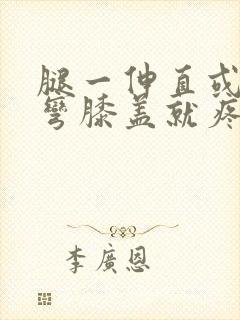 腿一伸直或
彎膝蓋就疼
李廣恩